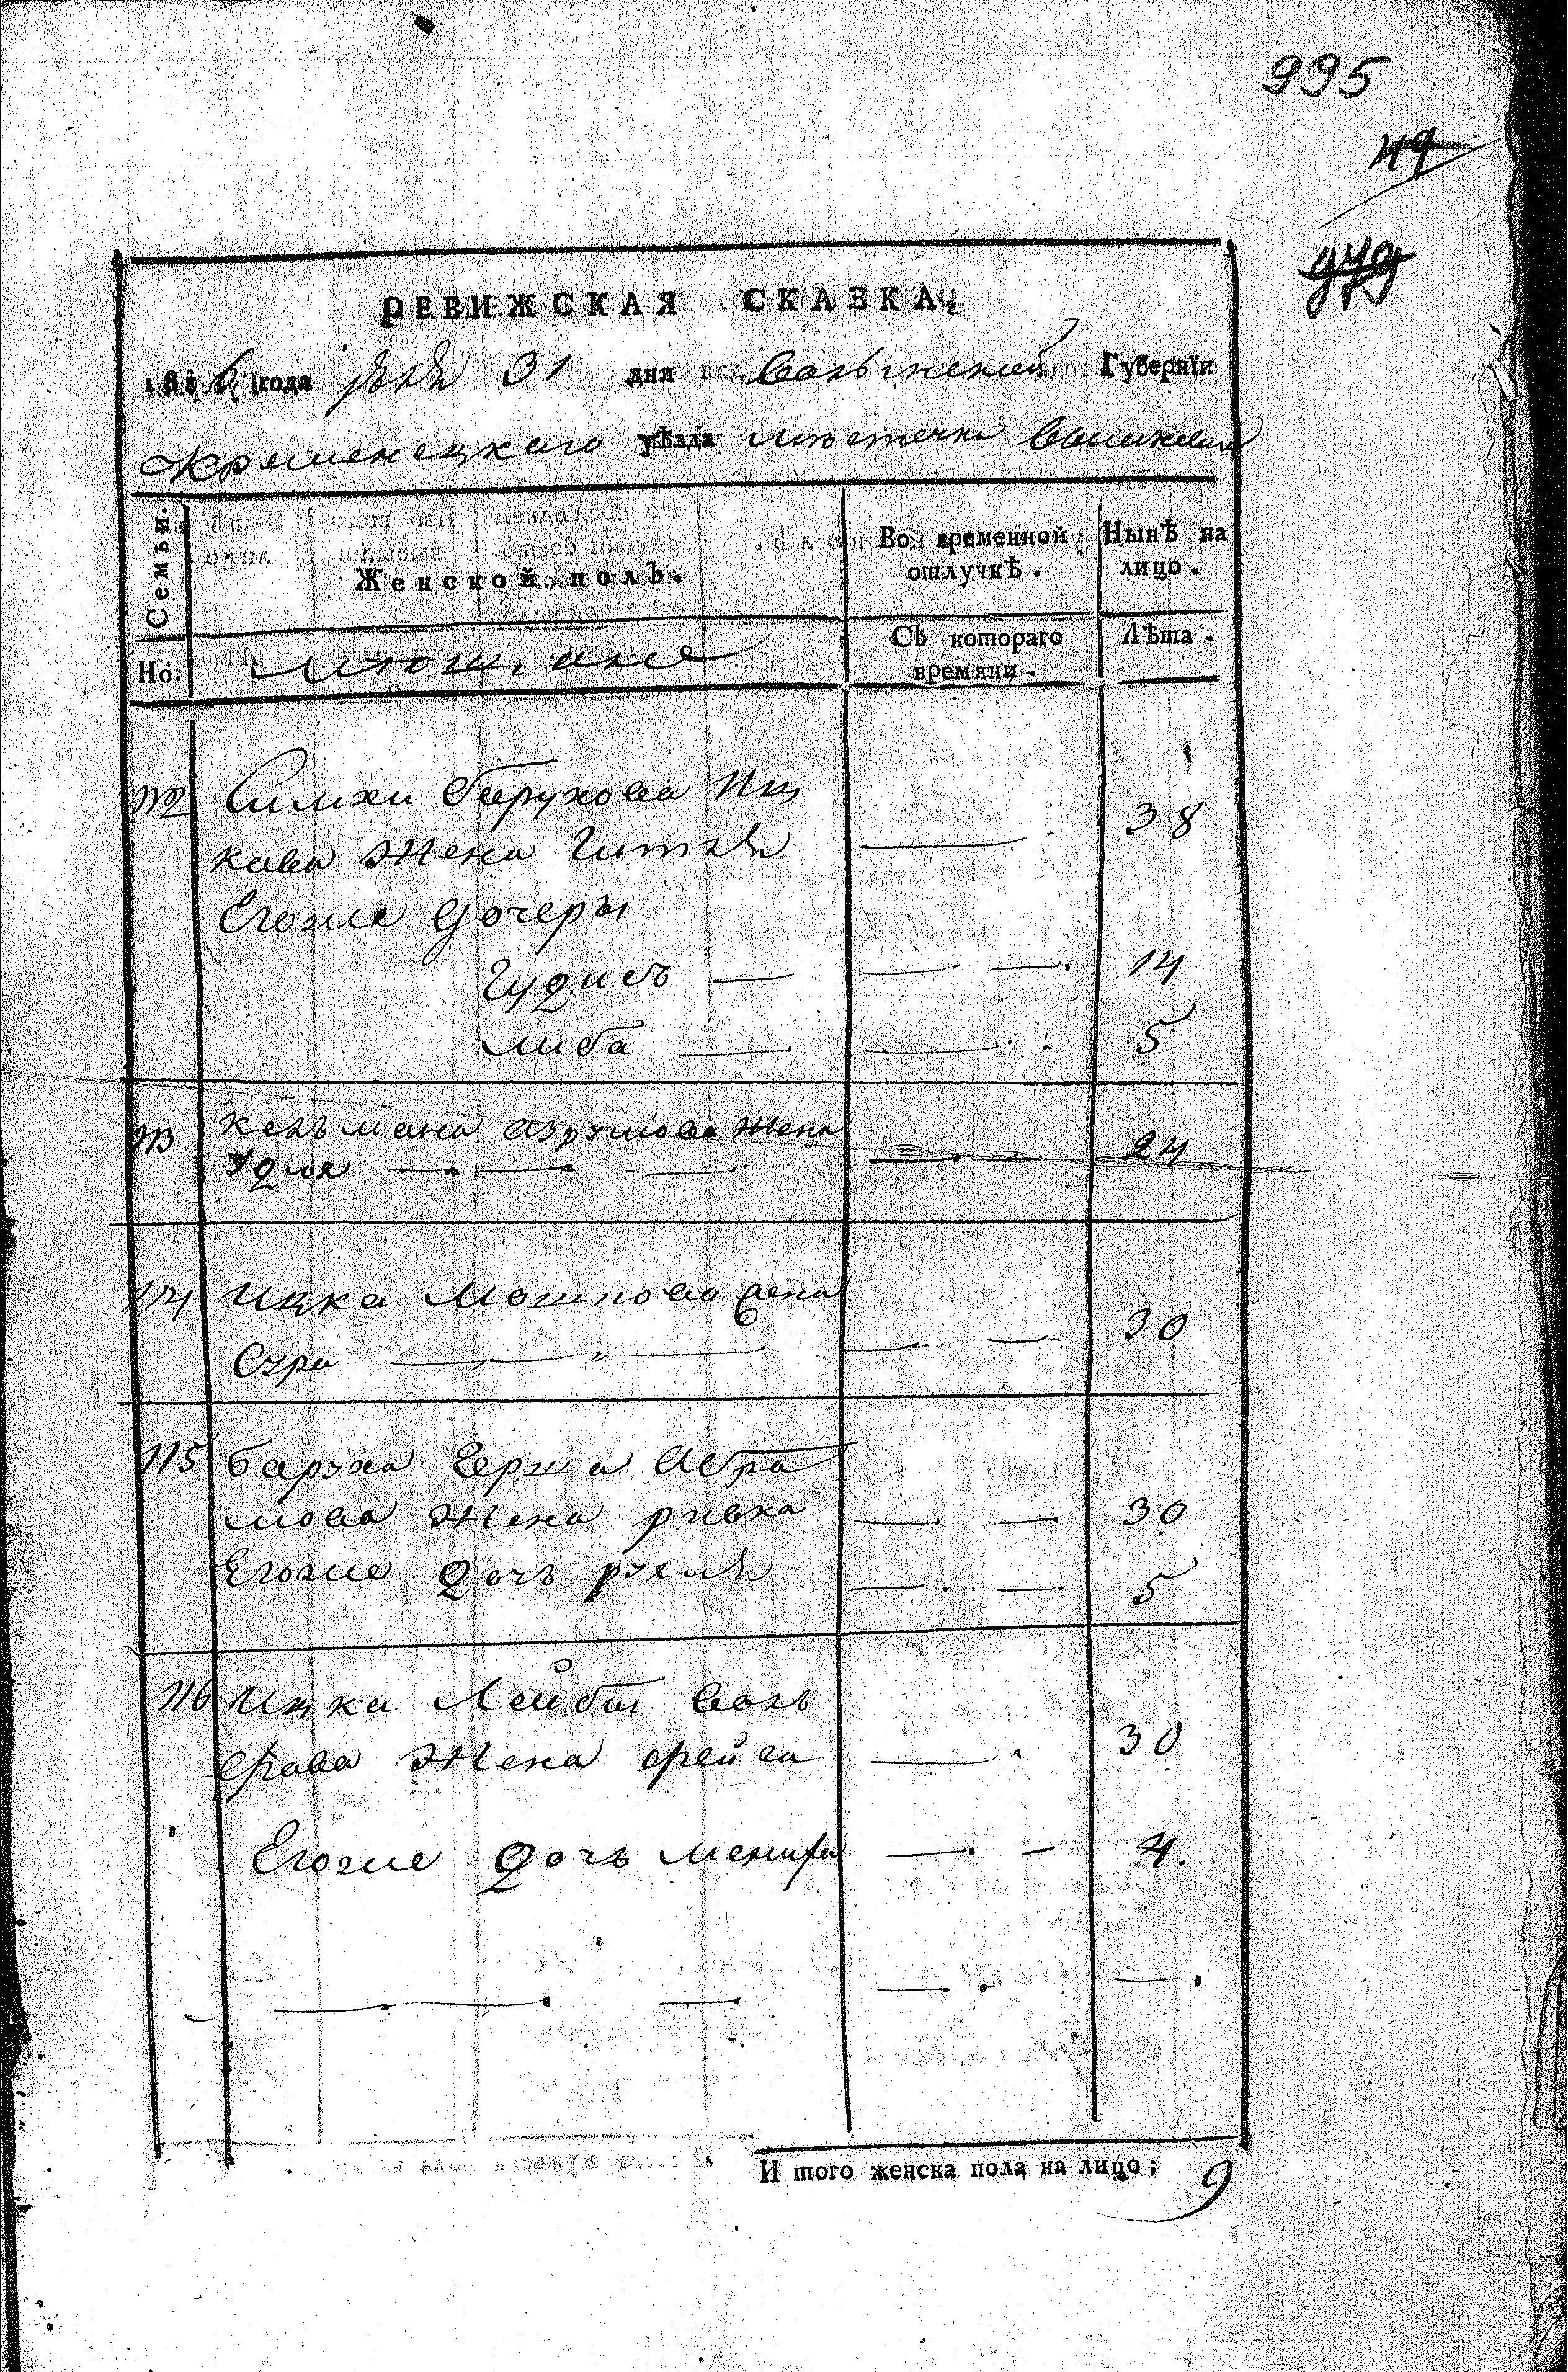 995
49
979
РЕВИЖСКАЯ СКАЗКА,
1816 года 31 дня Волынской Губернїи
Кременецкаго уѣзда местечка
Семьи.
Женской полъ.
Во временной отлучкѣ.
Нынѣ на лицо.
Но.
Съ котораго времяни.
Лѣта.
112 Симхи Барухова Иц
кова жена Гитля 38
Егоже дочеры
Гудись — — — 14
Либа — — 5
113 Кельмана жена
Удля — — — — 24
114 Ицка Мошкова жена
Сура — — — — — 30
115 Баруха Герша Абра
мова жена ривка — — 30
Егоже дочь рухля — — 5
116 Ицка Лейбы Воль
фова жена фейга — 30
Егоже дочь — — 4.
И того женска пола на лицо; 9